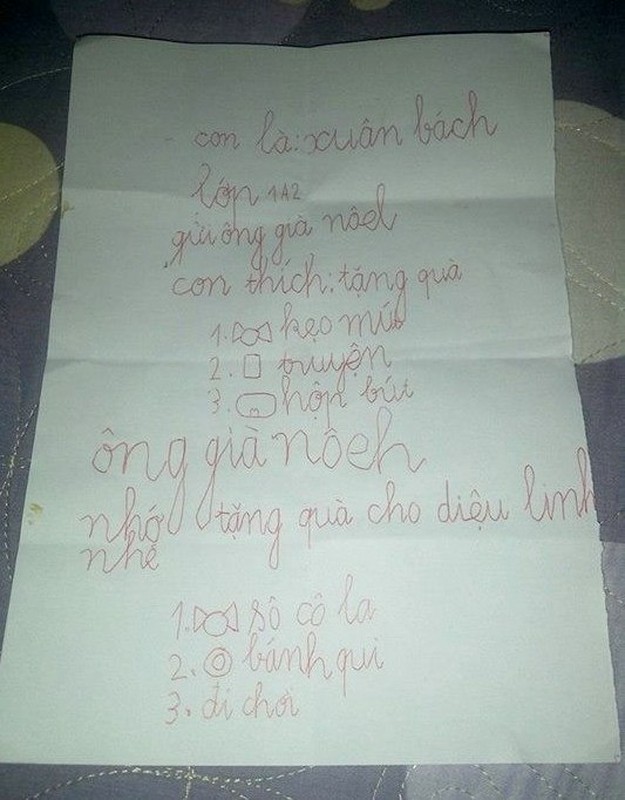 con là: xuân bách
lớp 1A2
gửi ông già nôel
con thích: tặng quà
1. kẹo mút
2. truyện
3. hộp bút
ông già nôeh
nhớ tặng quà cho diệu linh
nhé
1. sô cô la
2. bánh qui
3. đi chơi